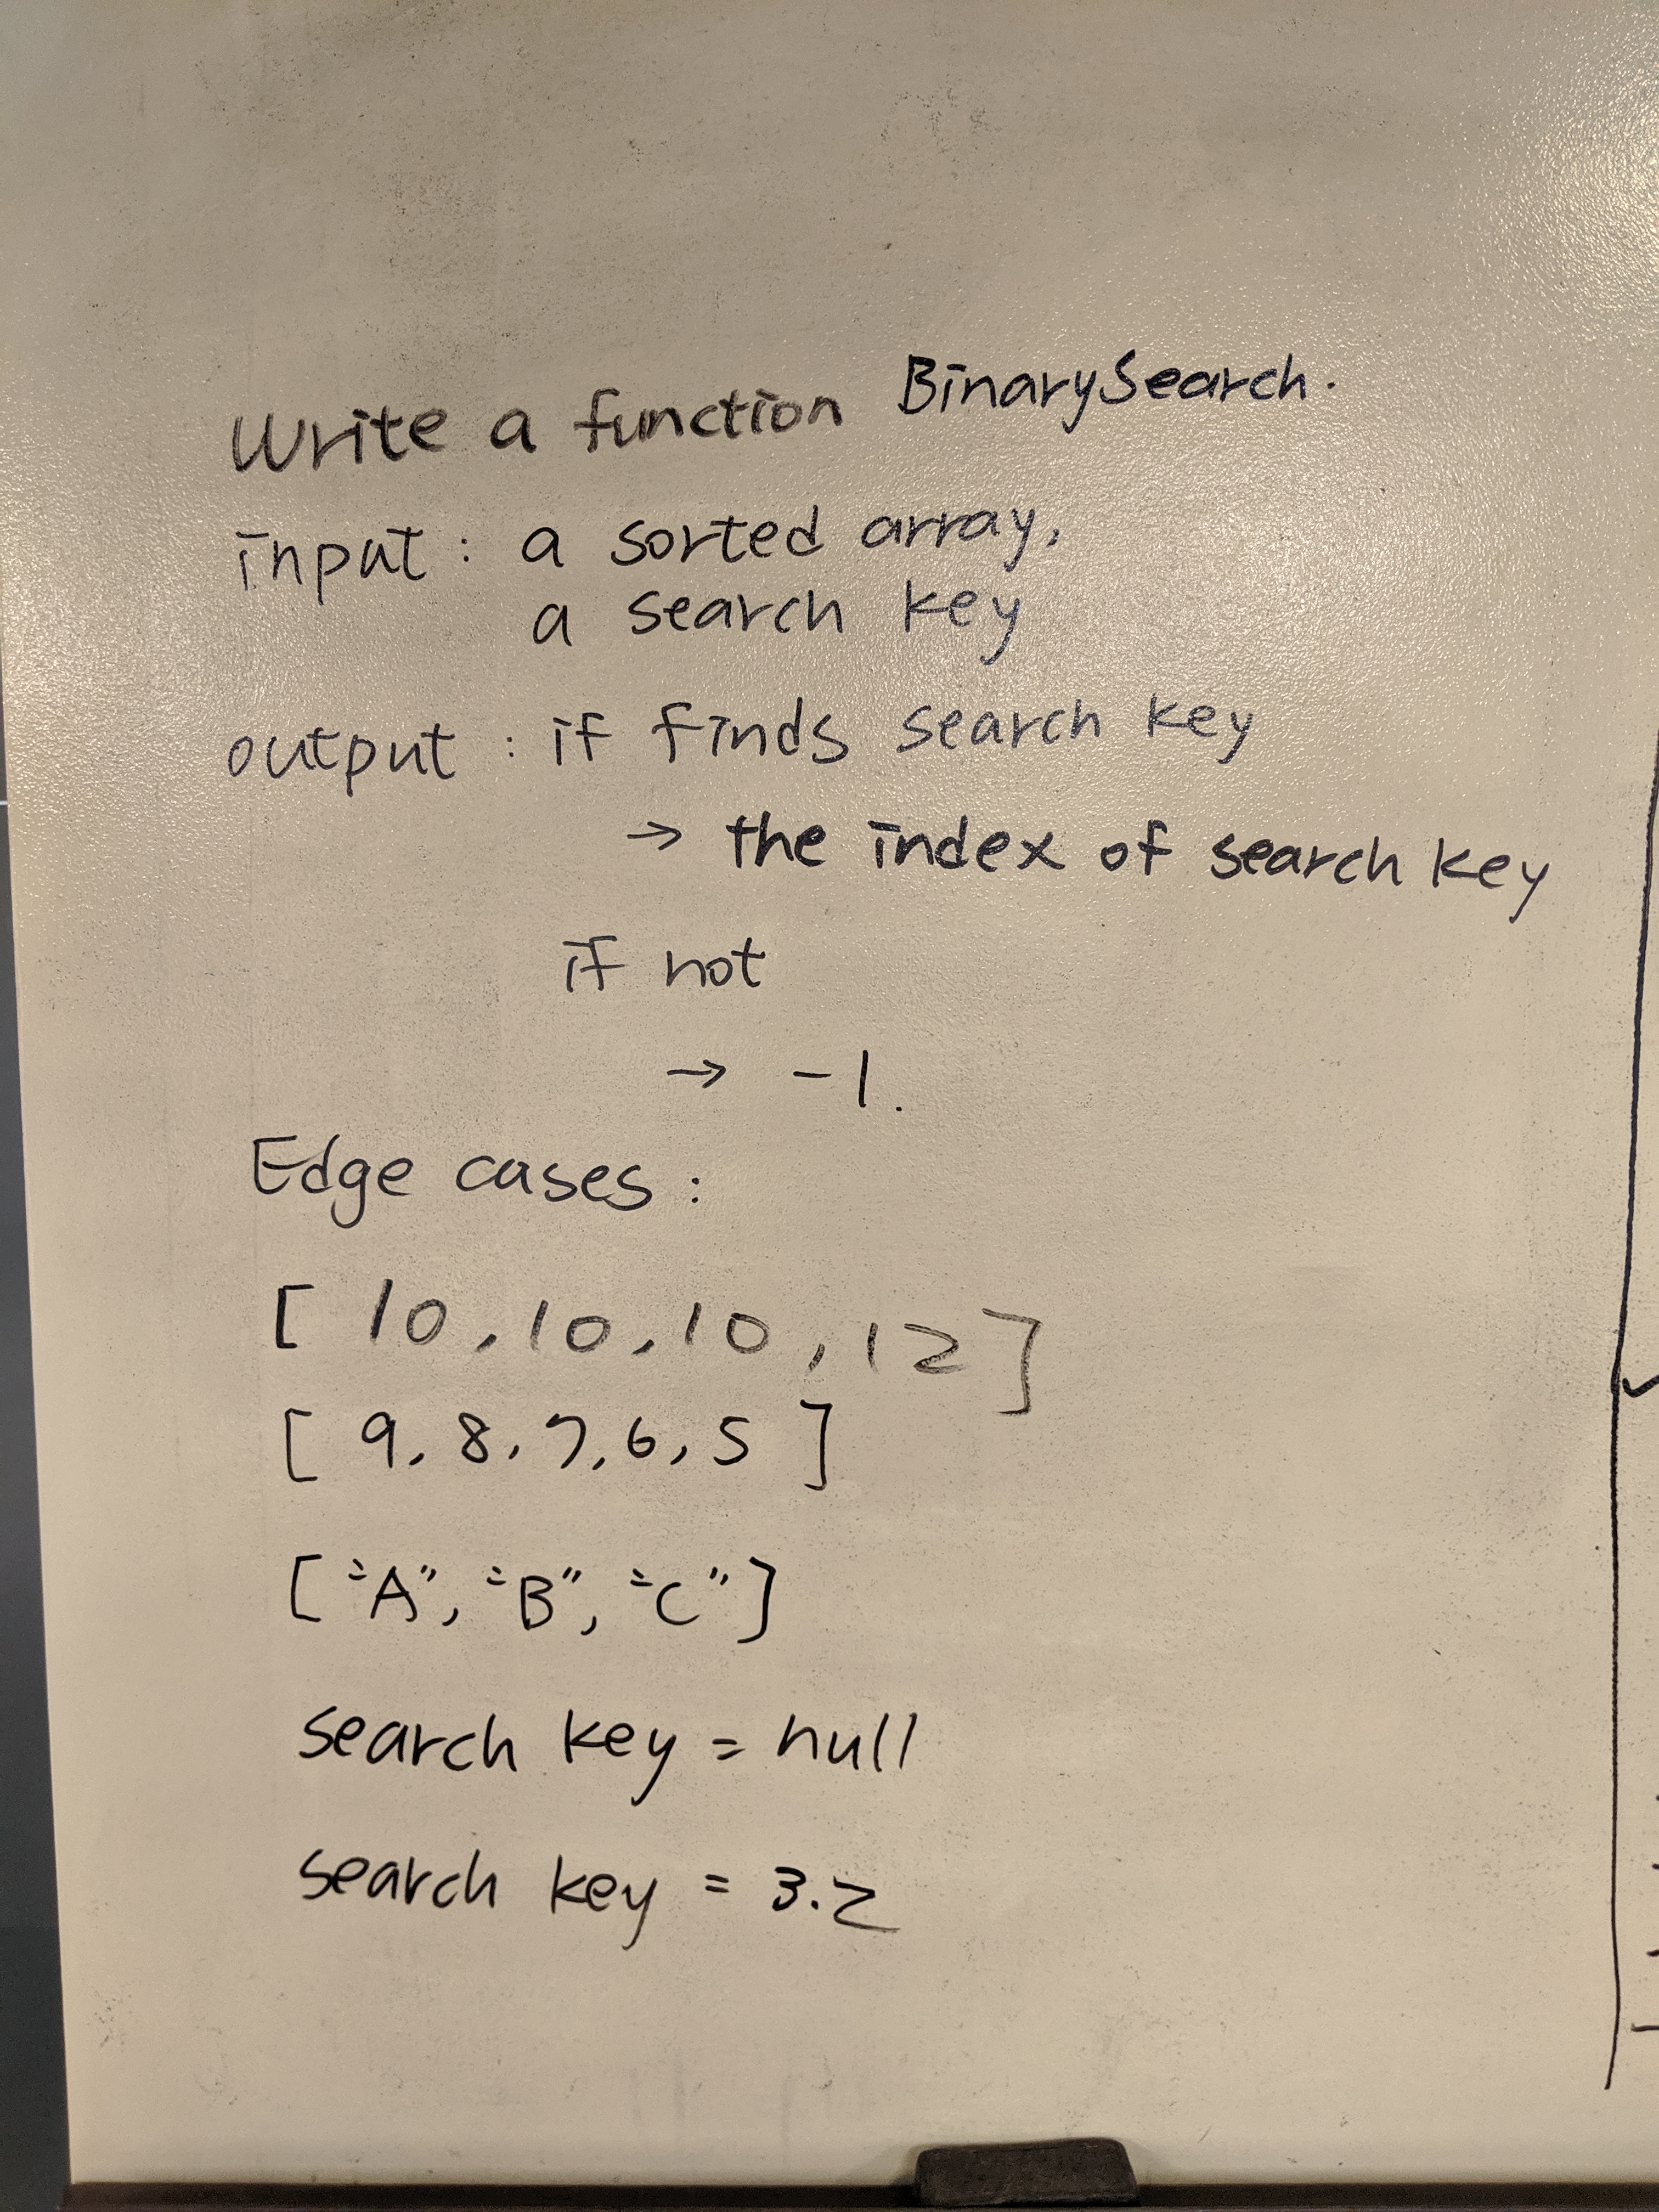 Write a function BinarySearch.
input : a sorted array,
a search key
output : if finds search key
→ the index of search key
if not
→ -1.
Edge cases :
[ 10, 10, 10, 12 ]
[ 9, 8, 7, 6, 5 ]
["A", "B", "C"]
search key = null
search key = 3.2